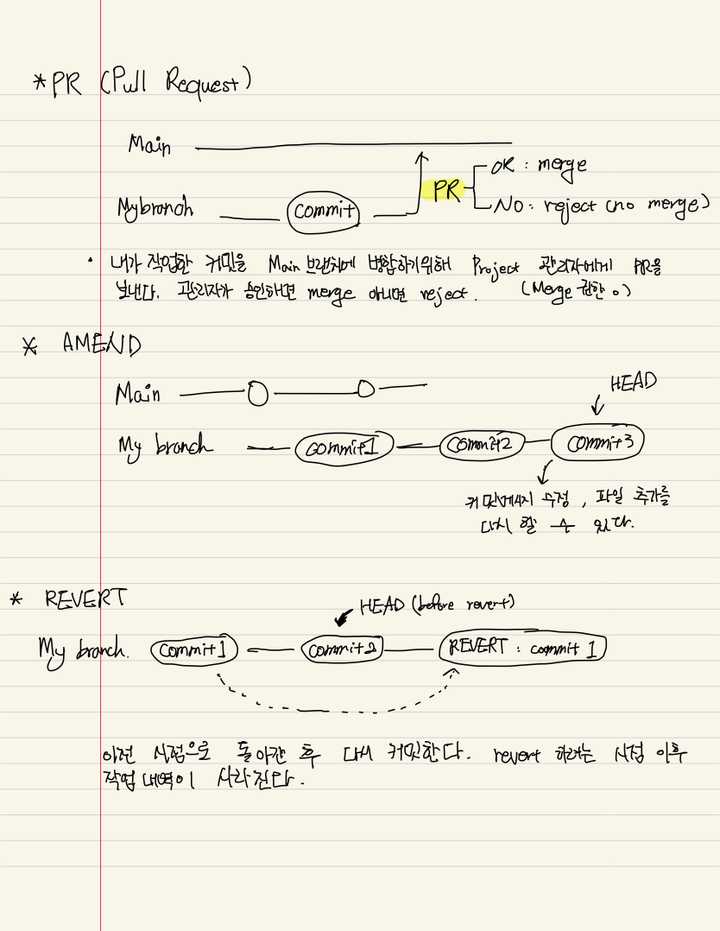 * PR (Pull Request)
Main
OK : merge
PR
My branch
commit
No : reject (no merge)
• 내가 작업한 커밋을 Main 브랜치에 병합하기위해 Project 관리자에게 PR을
보낸다. 관리자가 승인하면 merge 아니면 reject. (Merge 권한 o)
* AMEND
Main
HEAD
My branch
commit1
commit2
commit3
커밋메세지 수정, 파일 추가를
다시 할 수 있다.
* REVERT
HEAD (before revert)
My branch.
commit1
commit2
REVERT : commit 1
이전 시점으로 돌아간 후 다시 커밋한다. revert 하려는 시점 이후
작업 내역이 사라진다.